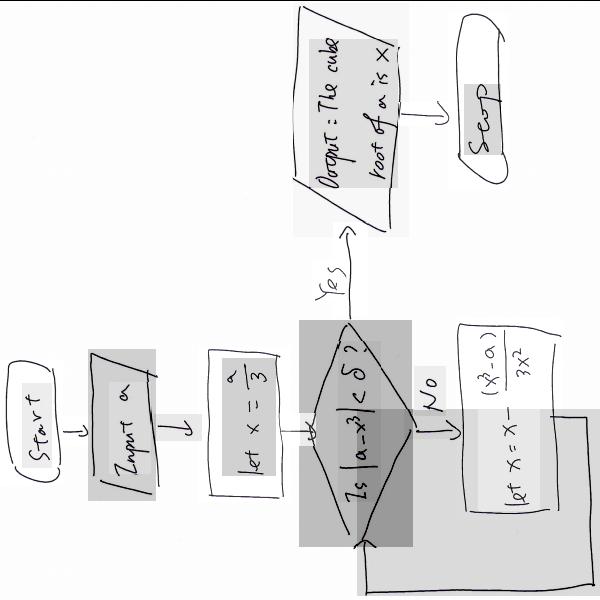 Start
Input a
let x = a/3
Is |a-x³| < δ ?
Yes
Output = The cube
root of a is x
Stop
No
let x = x - (x³-a)/3x²